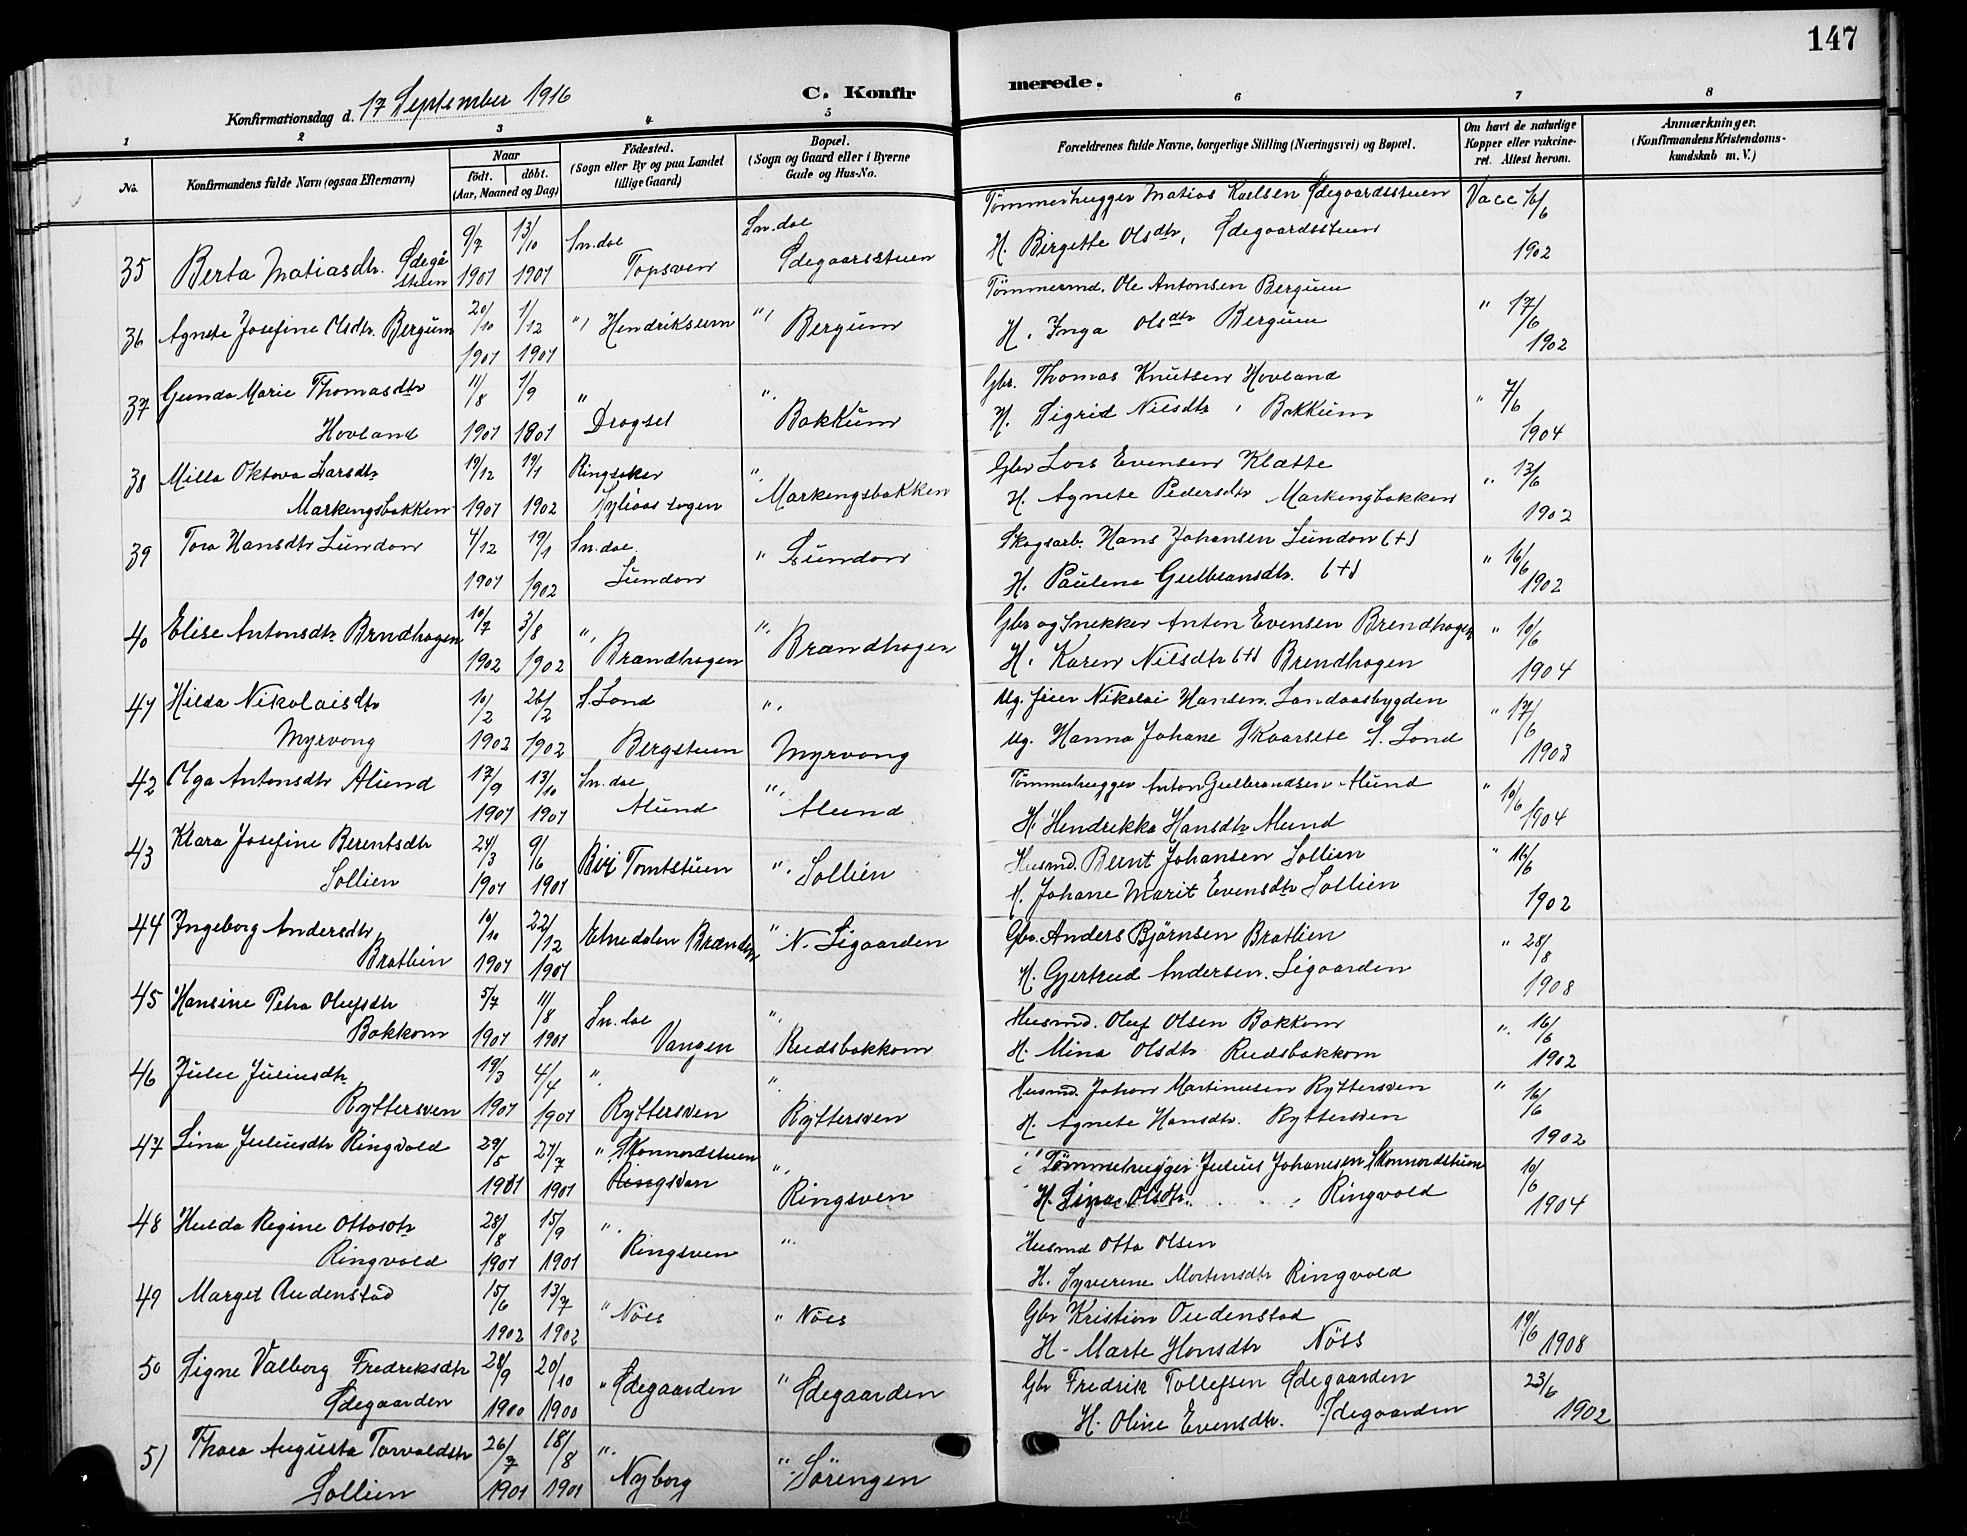 147
Konfirmationsdag d. 17 September 1916
C. Konfirmerede.
1 2 3 4 5 6 7 8
No. Konfirmandens fulde Navn (ogsaa Efternavn)
Naar født. døbt. (Aar, Maaned og Dag)
Fødested. (Sogn eller By og paa Landet tillige Gaard)
Bopæl. (Sogn og Gaard eller i Byerne Gade og Hus-No.
Forældrenes fulde Navne, borgerlige Stilling (Næringsvei) og Bopæl.
Om havt de naturlige Kopper eller vaccineret. Attest herom.
Anmærkninger. (Konfirmandens Kristendomskundskab m. V.)
35 Berta Matiasdtr. Ødegåstuen 9/7 1901 13/10 1901 Sn.dal Topsven Sn.dal Ødegaarsstuen
Tømmerhugger Matias Karlsen Ødegaardsstuen Vacc 16/6
H. Birgette Olsdtr, Ødegaardsstuen 1902
36 Agnete Josefine Olsdtr. Bergum 20/10 1901 1/12 1901 " Hendriksern " Bergum
Tømmermd. Ole Antonsen Bergum " 17/6
H. Inga Olsdtr Bergum 1902
37 Gunda Marie Thomasdtr Hovland 11/8 1901 1/9 1801 " Dragset " Bakkum
Gbr. Thomas Knutsen Hovland " 7/6
H. Sigrid Nilsdtr " Bakkum 1904
38 Milla Oktova Larsdtr Markengsbakken 19/12 1901 19/1 1902 Ringsaker " Markengsbakken
Gbr Lars Evensen Klætte " 13/6
H. Agnete Pedersdtr Markengbakken 1902
39 Tora Hansdtr Lundon 4/12 1901 19/1 1902 Sn.dal. Lundon " Lundon
Skogsarb. Hans Johansen Lundon (+) " 16/6
H. Pauline Gulbransdtr. (+) 1902
40 Elise Antonsdtr Brndhagen 10/7 1902 3/8 1902 " Brandhagen " Brændhagen
Gbr og Snekker Anton Evensen Brendhagen " 10/6
H. Karen Nilsdtr (+) Brendhagen 1904
41 Hilda Nikolaisdtr Myrvang 10/2 1902 26/2 1902 S. Land Bergstuen " Myrvang
Ug. Nikolai Hansen. Landaasbygden " 17/6
Ug. Hanna Johane S. Land 1903
42 Olga Antonsdtr Alund 17/9 1901 13/10 1901 Sn.dal Alund " Alund
Tømmerhugger Anton Gulbrandsen Alund " 10/6
H. Hendrikka Hansdtr Alund 1904
43 Klara Josefine Berentsdtr Sollien 24/3 1901 9/6 1901 Biri Tomtstuen " Sollien
Husmd. Bernt Johansen Sollien " 16/6
H. Johane Marit Evensdtr Sollien 1902
44 Ingeborg Andersdtr. Bratlien 10/10 1901 22/12 1901 Etnedalen " N. Ligaarden
Gbr. Anders Bjørnsen Bratlien " 28/8
H. Gjertrud Andersen. Ligaarden 1908
45 Hansine Petra Olufsdtr Bakkom 5/7 1901 11/8 1901 Sn.dal Vangen " Rudsbakkom
Husmd. Oluf Olsen Bakkom " 16/6
H. Mina Olsdtr Rudsbakkom 1902
46 Julie Juliusdtr. Ryttersven 19/3 1901 4/4 1901 " Ryttersven " Ryttersven
Husmd. Johan Martinusen Ryttersven " 16/6
H. Agnete Hansdtr. Ryttersven 1902
47 Lina Juliusdtr Ringvold 29/5 1901 21/7 1901 " Skonnordstuen Ringsven " Ringsven
Tømmerhugger Julius Johansen Skonnordstuen 10/6
H. Lina Olsdtr. Ringvold 1904
48 Hulda Regine Ottosdtr Ringvold 28/8 1901 15/9 1901 " Ringsven "
Husmd Otto Olsen
H. Syverine Mortensdtr Ringvold
49 Marget Audenstad 15/6 1902 13/7 1902 " Nöss " Nöss
Gbr Kristian Oudenstad 19/6
H. Marte Hansdtr Nöss 1908
50 Signe Valborg Fredriksdtr Ødegaarden 28/9 1900 20/10 1900 " Ødegaarden " Ødegaarden
Gbr Fredrik Tollefsen Ødegaarden 23/6
H. Oline Evensdtr. Ødegaarden 1902
51 Thora Augusta Torvaldsdtr Sollien 26/7 1901 18/8 1901 " Nyborg " Sörengen